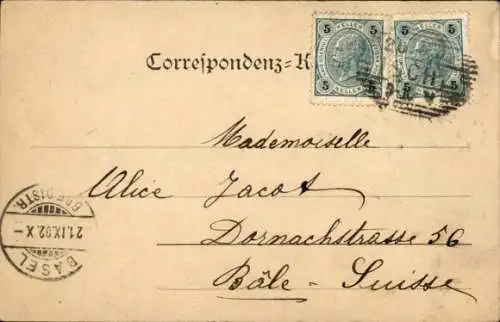 Correspondenz-K
5 5 5 5
5 5 5 5
HELLER
Mademoiselle
Alice Jacot
Dornachstrasse 56
Bâle - Suisse
BASEL
21.IX.02.X-